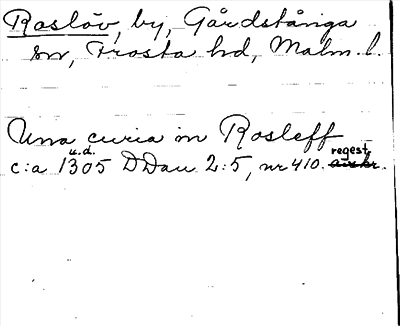 Roslöv, by, Gårdstånga
sn, Frosta hd, Malm. l.
Una curia in Rosleff
u.d.
c:a 1305 DDan 2:5, nr 410. regest.